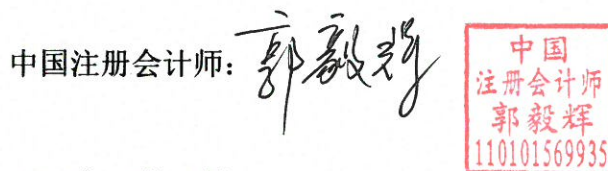 中国注册会计师：郭毅辉
中国
注册会计师
郭毅辉
110101569935